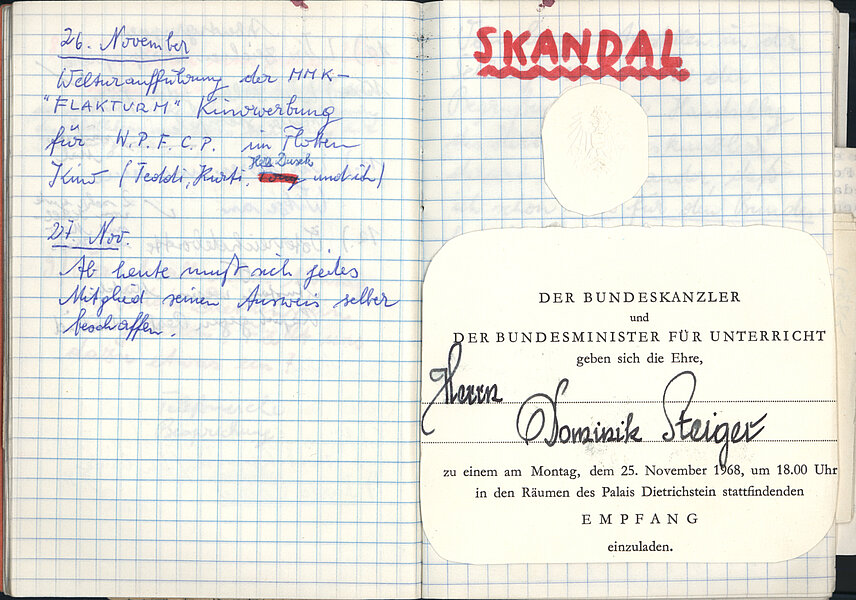 26. November
Welturaufführung der MMK-
"FLAKTURM" Kinowerbung
für W.P.F.C.P. im Flotten
Kino (Teddi, Kurti, Hr. Dusek und ich)
27. Nov.
Ab heute muß sich jedes
Mitglied seinen Ausweis selber
beschaffen.
SKANDAL
DER BUNDESKANZLER
und
DER BUNDESMINISTER FÜR UNTERRICHT
geben sich die Ehre,
Herrn
Dominik Steiger
zu einem am Montag, dem 25. November 1968, um 18.00 Uhr
in den Räumen des Palais Dietrichstein stattfindenden
EMPFANG
einzuladen.